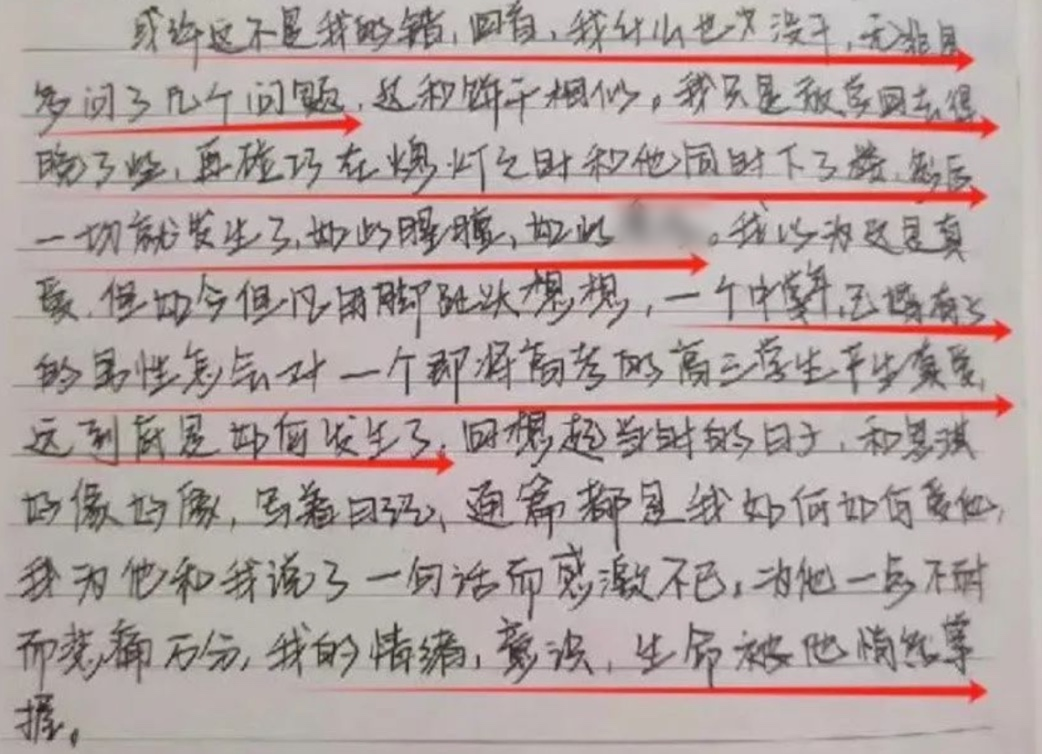 或许这不是我的错,回首,我什么也没干,无非是
多问了几个问题,这和饼干相似。我只是放学回去得
晚了些,再碰巧在熄灯之时和他同时下了楼,然后
一切就发生了,如此朦胧,如此 。我以为这是真
爱,但如今但凡用脚趾头想想,一个中年,已婚有子
的男性怎会对一个即将高考的高三学生产生真爱,
这到底是如何发生了,回想起当时的日子,和思琪
好像好像,写着日记,通篇都是我如何如何爱他,
我为他和我说了一句话而感激不已,为他一点不耐
而悲痛万分,我的情绪,意识,生命被他悄然掌
握。